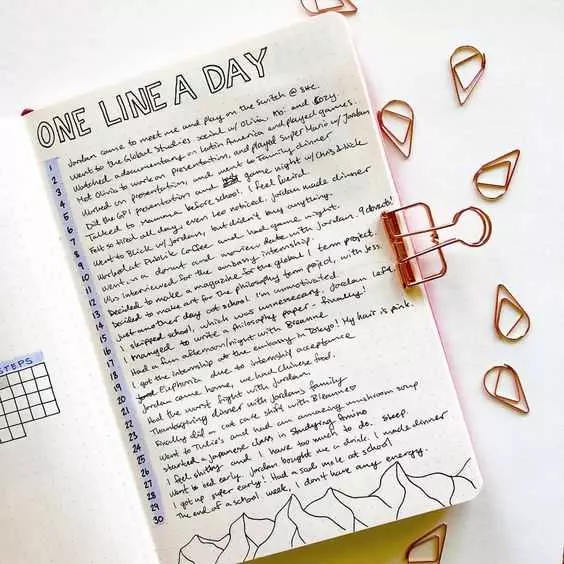 ONE LINE A DAY
1 Jordan came to meet me and play on the Switch @
2 Went to the Global Studies social w/ Olivia, Abi and
3 Watched a documentary on Latin America and played games.
4 Met Olivia to work on presentation, and played Super Mario w/ Jordan
5 Worked on presentation, and went to family dinner
6 Did the GPI presentation and game night w/ Chris & Nick
7 Talked to mamma before school. I feel weird.
8 Felt so tired all day, even Leo noticed. Jordan made dinner
9 Went to Blick w/ Jordan, but didn't buy anything.
10 Worked at Public Coffee and had game night.
11 Went on a donut and movie date with Jordan. 9 donuts!
12 Was interviewed for the embassy internship.
13 Decided to make a magazine for the global 1 term project.
14 Decided to make art for the philosophy term project, with Jess.
15 Just another day at school. I'm unmotivated.
16 I skipped school, which was unnecessary. Jordan left.
17 I managed to write a philosophy paper, finally.
18 Had a fun afternoon/night with Breanne
19 I got the internship at the embassy in Tokyo! My hair is pink.
20 Euphoria due to internship acceptance
21 Jordan came home, we had Chinese food.
22 Had the worst fight with Jordan
23 Thanksgiving dinner with Jordans family
24 Finally did a cat cafe shift with Breanne♡
25 Went to Julie's and had an amazing mushroom soup
26 Started a Japanese class in Studying Amino
27 I feel shitty and I have too much to do. sleep.
28 Went to bed early. Jordan bought me a drink. I made dinner
29 I got up super early! Had a at school
30 The end of a school week, I don't have any energy.
STEPS